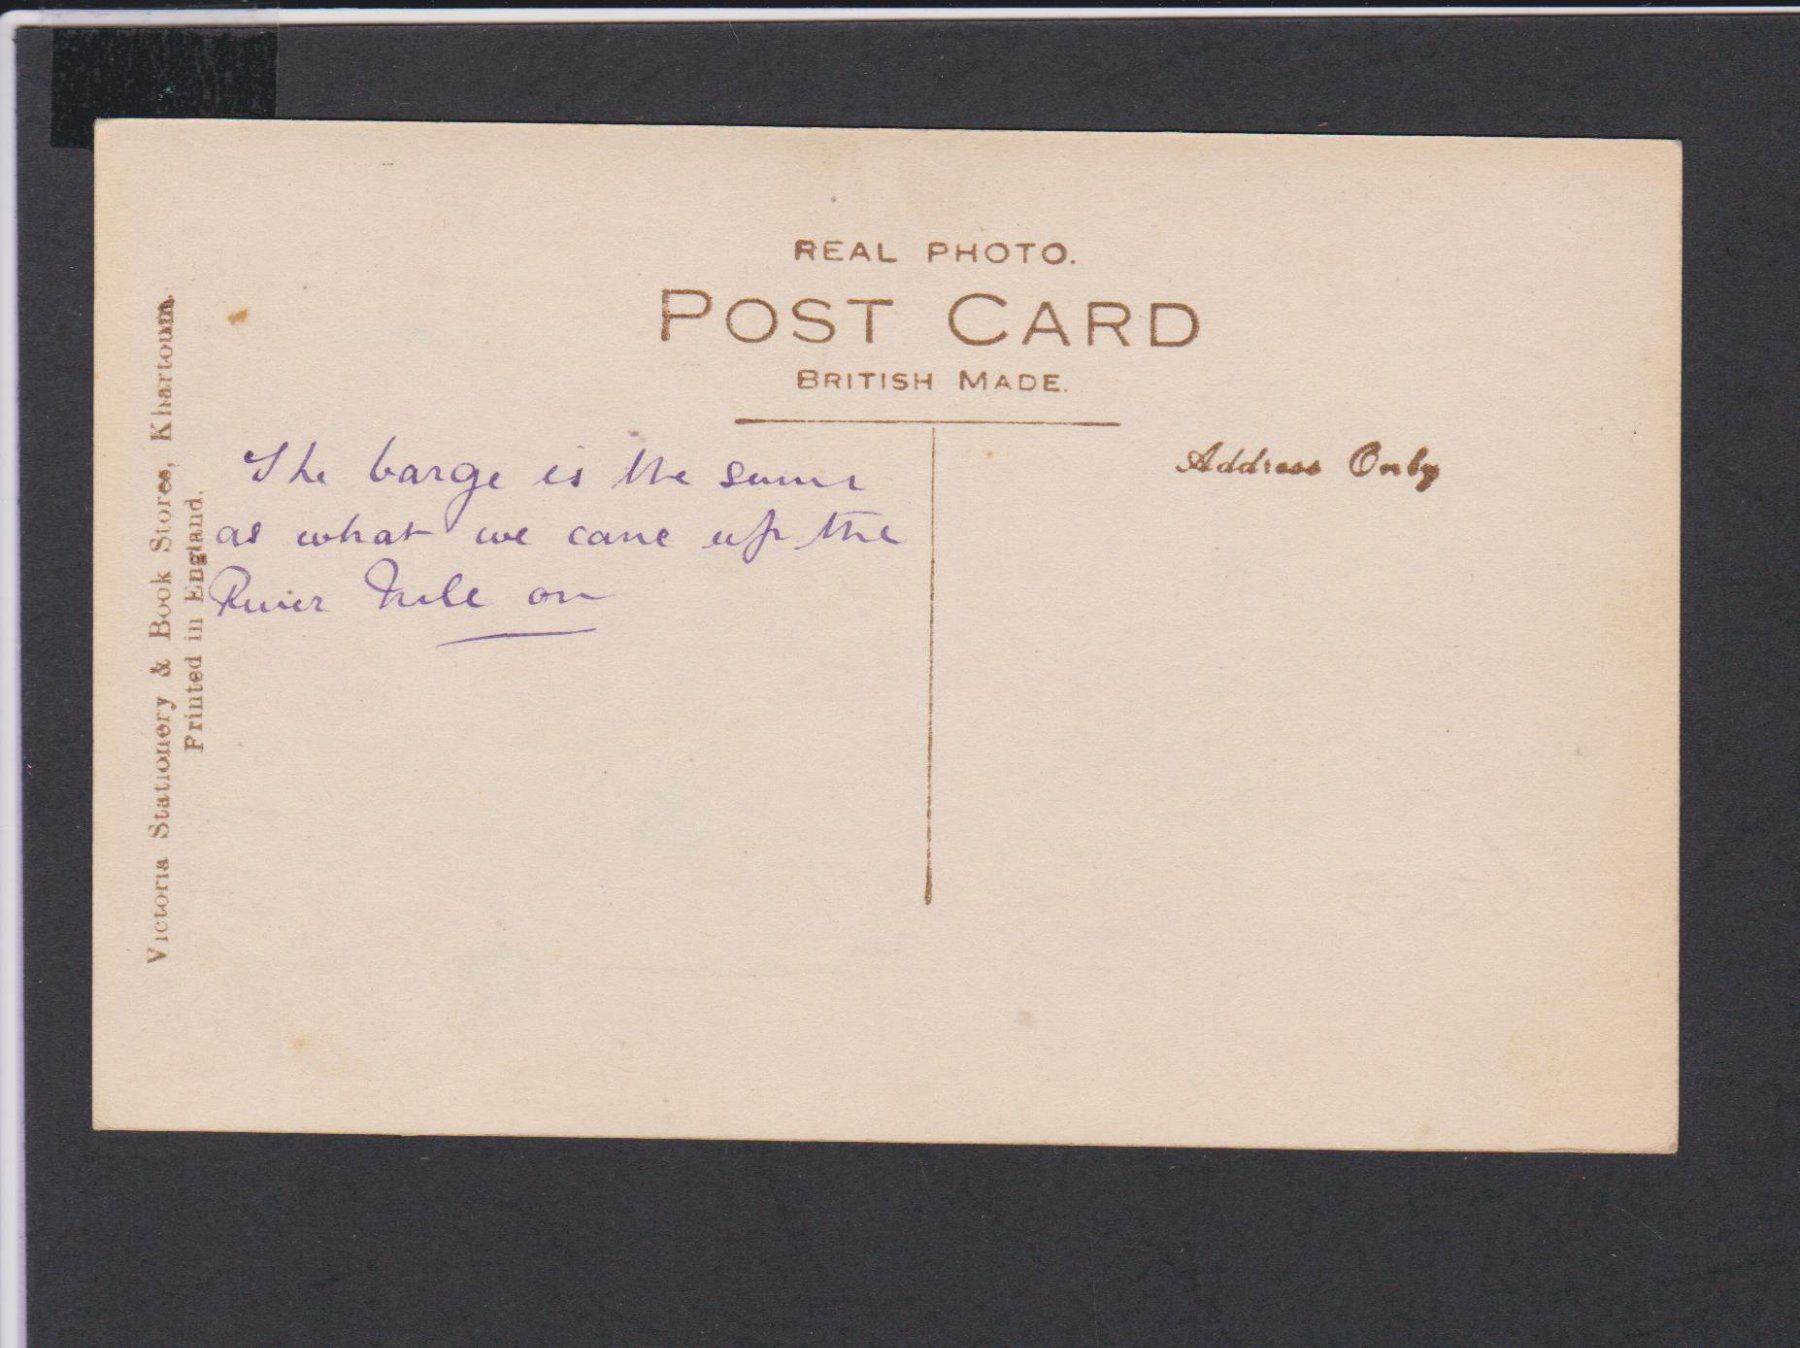 REAL PHOTO.
POST CARD
BRITISH MADE.
Address Only
The barge is the same
as what we came up the
River Nile on
Victoria Stationery & Book Stores, Khartoum.
Printed in England.